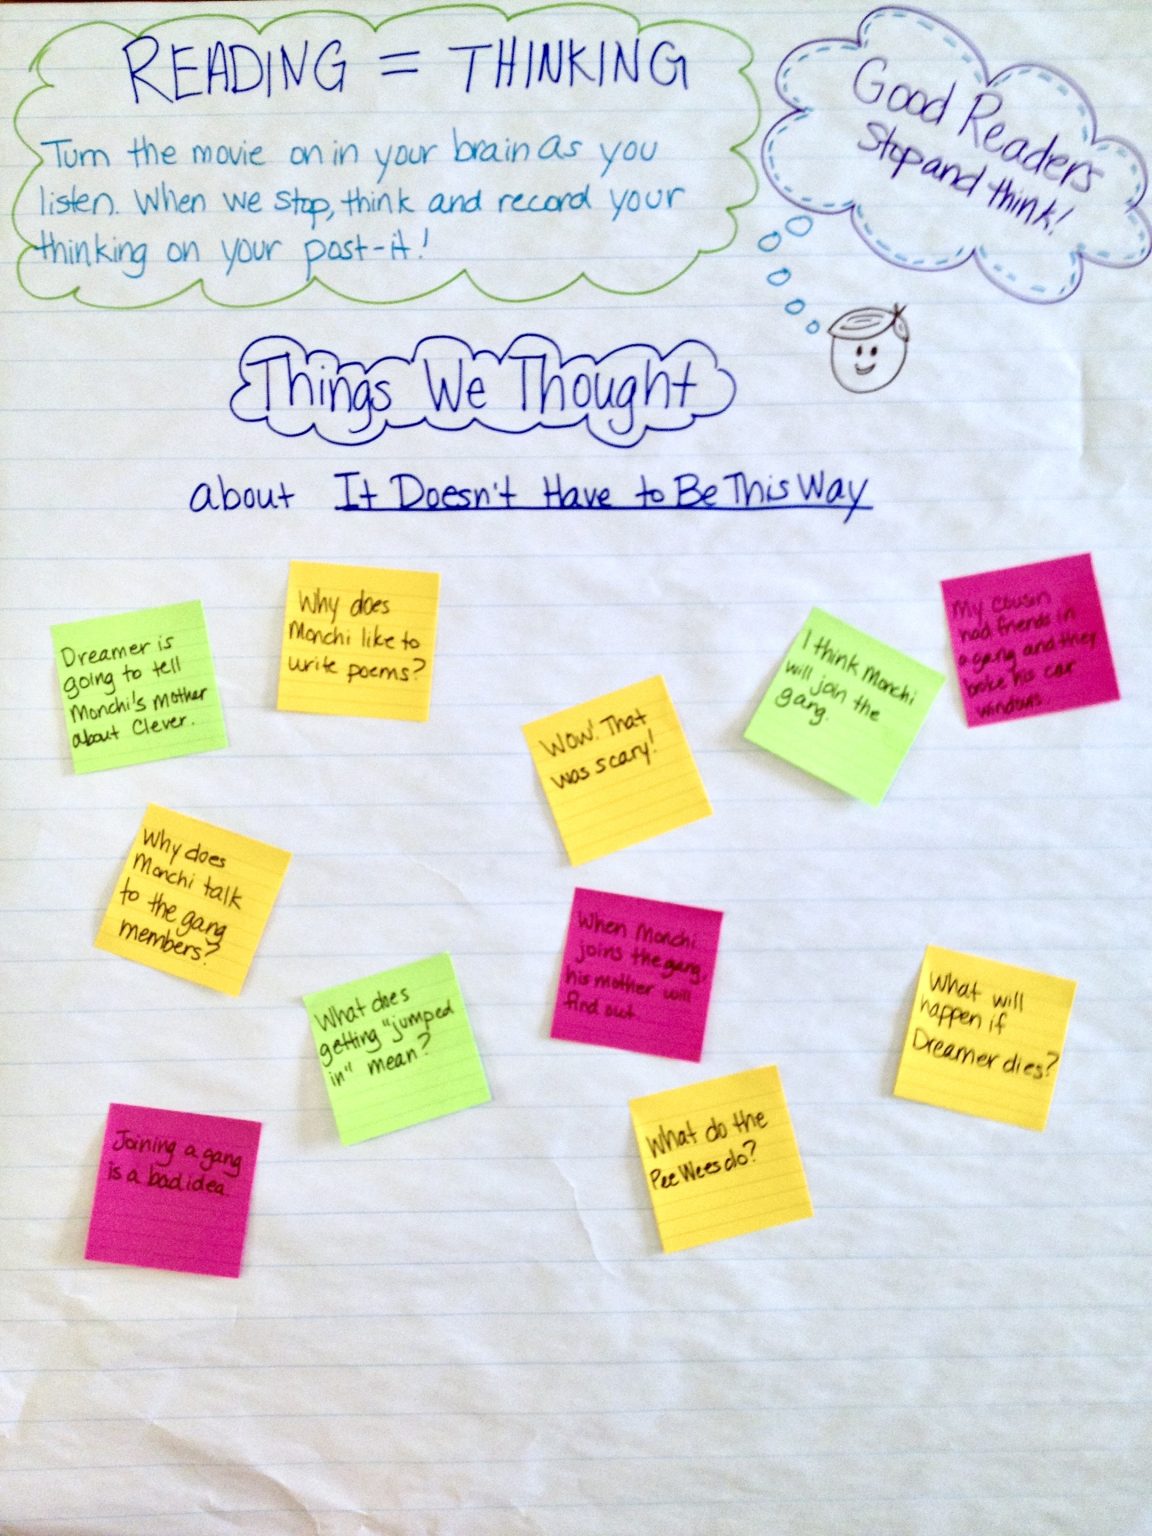 READING = THINKING
Turn the movie on in your brain as you
listen. When we stop, think and record your
thinking on your post-it!
Good Readers
Stop and think!
Things We Thought
about It Doesn't Have to Be This Way
Dreamer is
going to tell
Monchi's Mother
about Clever.
Why does
Monchi like to
write poems?
Wow! That
was scary!
I think Monchi
will join the
gang.
My cousin
had friends in
a gang and they
broke his car
windows.
Why does
Monchi talk
to the gang
members?
What does
getting "jumped
in" mean?
When Monchi
joins the gang,
his mother will
find out.
What will
happen if
Dreamer dies?
Joining a gang
is a bad idea.
What do the
Pee Wees do?